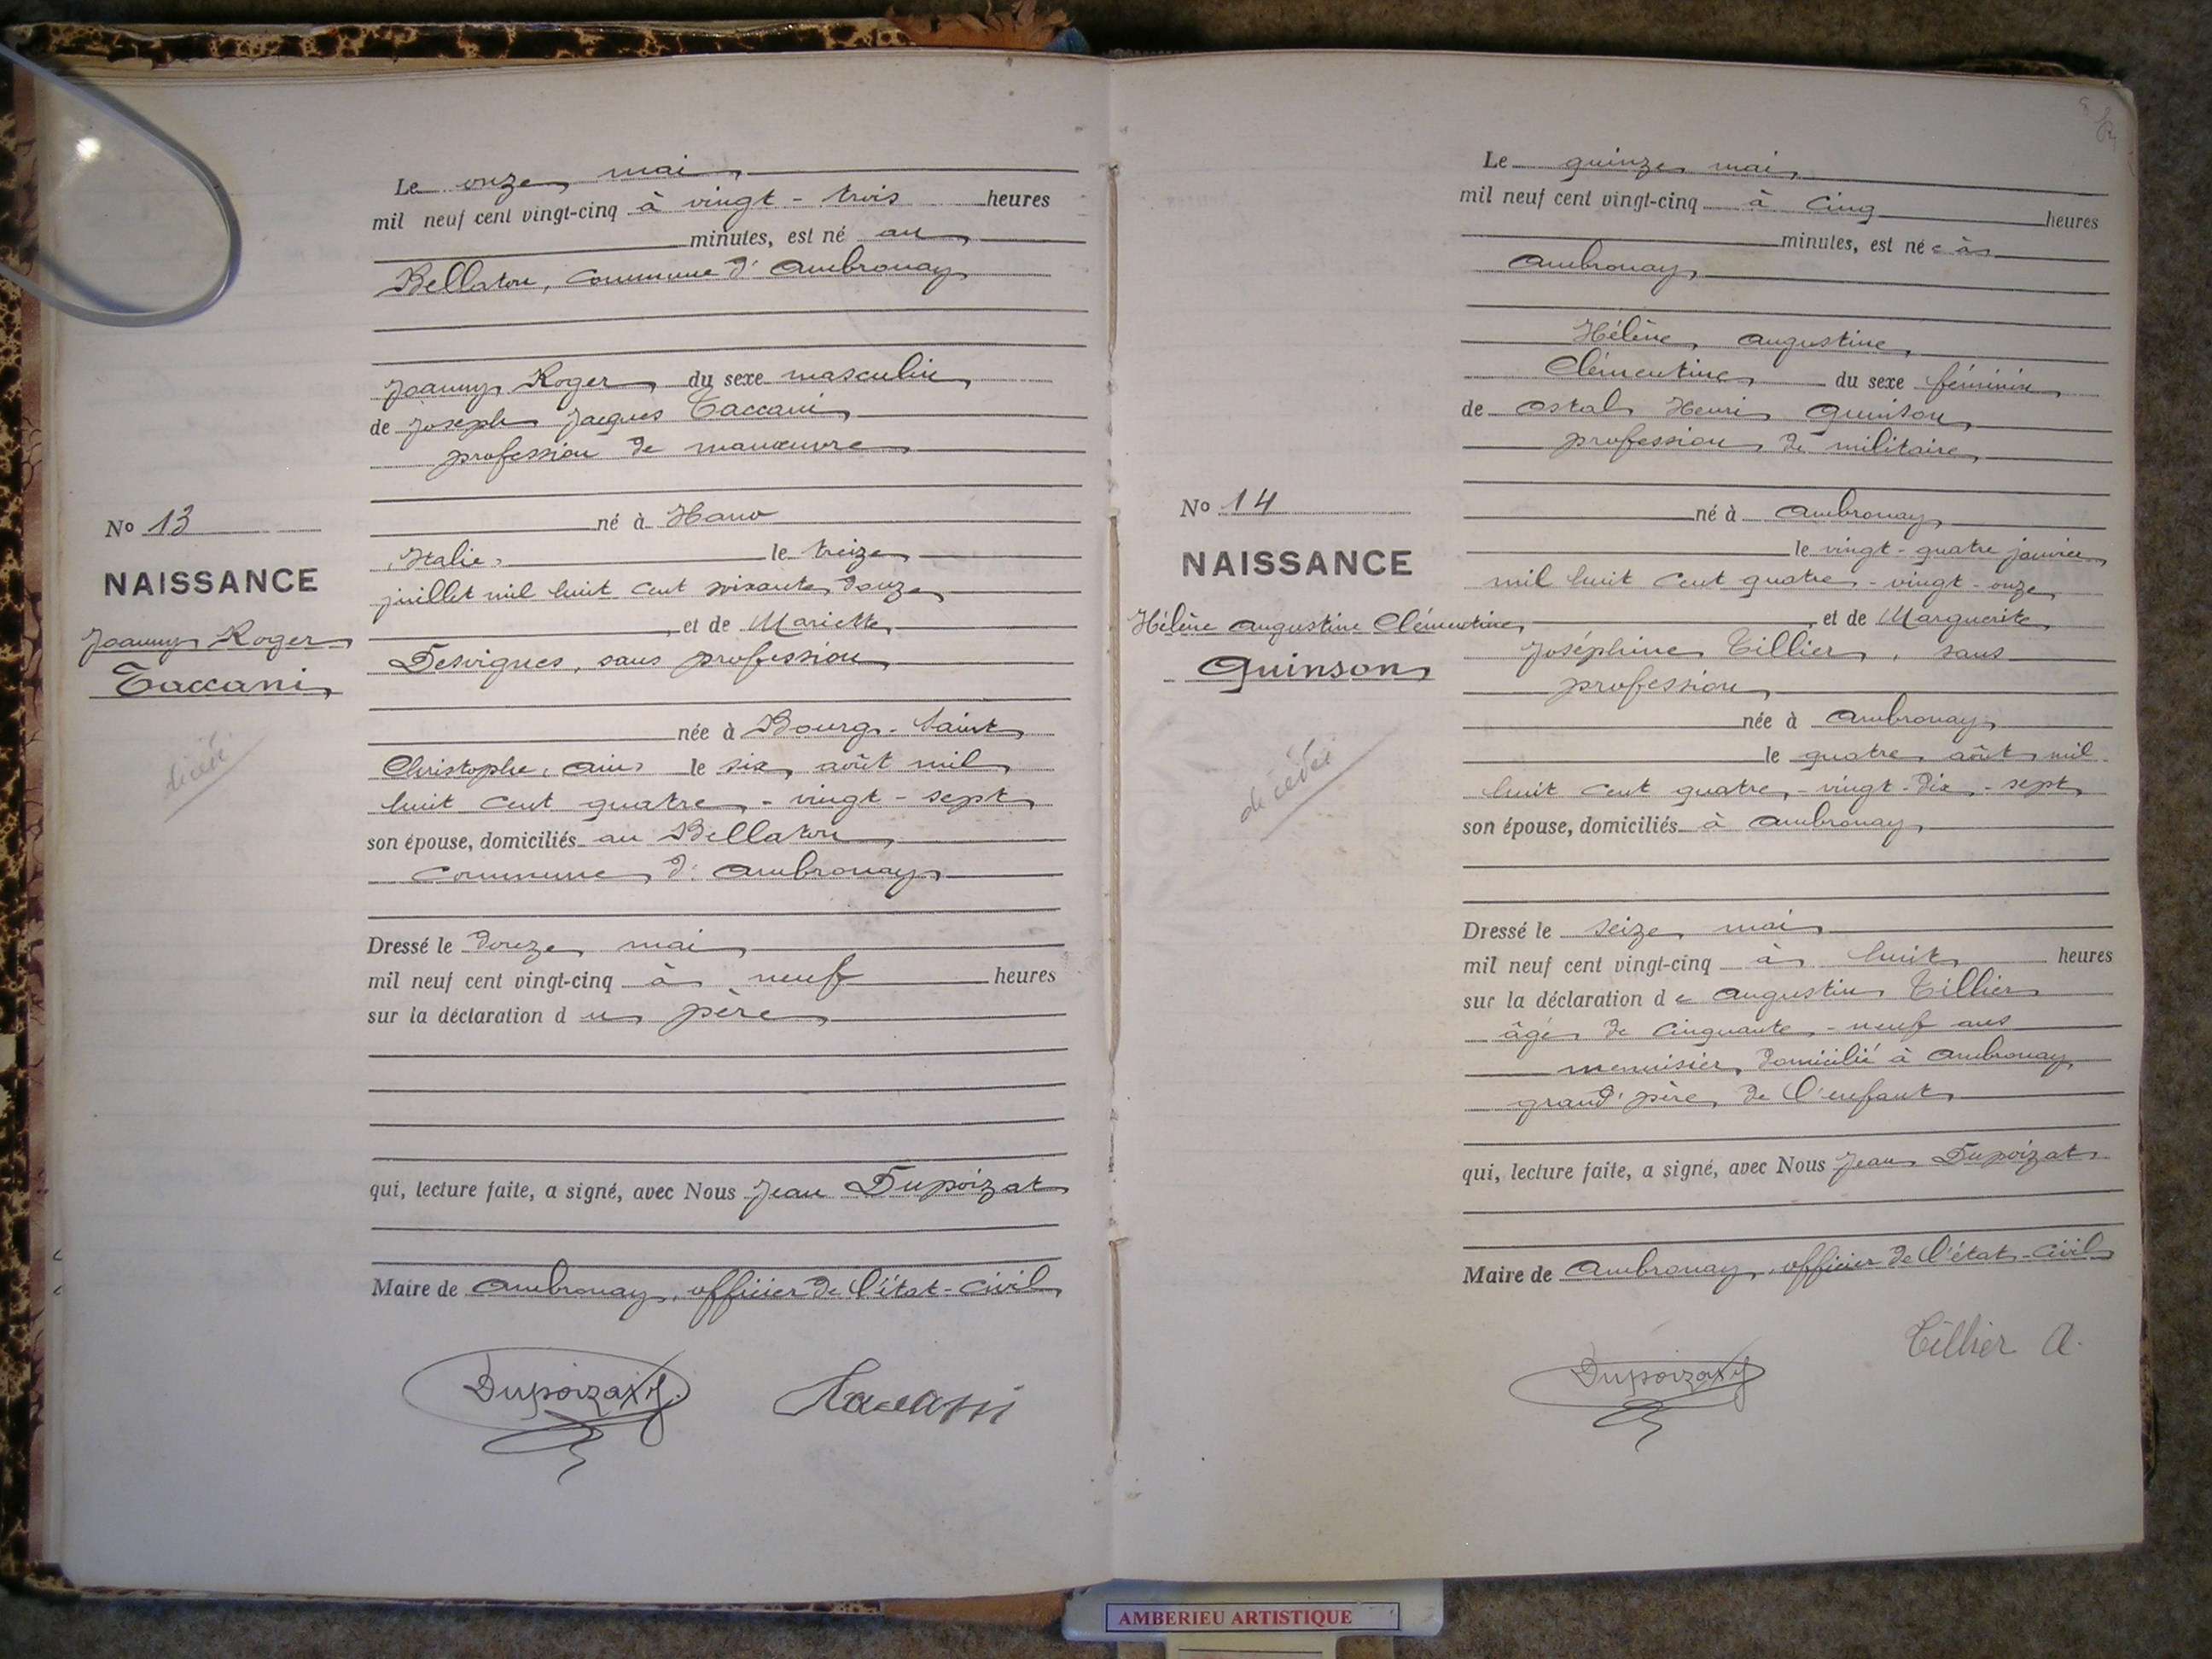 Le onze mai
mil neuf cent vingt-cinq à vingt-trois heures
minutes, est né au
Bellaton, commune d'Ambronay
Joanny Roger du sexe masculin
de Joseph Jacques Taccani
profession de manœuvre
No 13
né à Hano
NAISSANCE
(Italie) le treize
juillet mil huit cent soixante douze
Joanny Roger
et de Mariette
Taccani
Desvignes, sans profession
décédé
née à Bourg-Saint
Christophe (Ain) le six août mil
huit cent quatre-vingt-sept
son épouse, domiciliés au Bellaton
commune d'Ambronay
Dressé le douze mai
mil neuf cent vingt-cinq à neuf heures
sur la déclaration du père
qui, lecture faite, a signé, avec Nous Jean Dupoizat
Maire de Ambronay, officier de l'état-civil
Dupoizat J.
Taccani
Le quinze mai
mil neuf cent vingt-cinq à cinq heures
minutes, est née à
Ambronay
Hélène, Augustine,
Clémentine du sexe féminin
de Oskal Henri Quinson
profession de militaire
No 14
né à Ambronay
NAISSANCE
le vingt-quatre janvier
mil huit cent quatre-vingt-onze
Hélène Augustine Clémentine
, et de Marguerite
Quinson
Joséphine Tillier, sans
profession
décédée
née à Ambronay
le quatre août mil
huit cent quatre-vingt-dix-sept
son épouse, domiciliés à Ambronay
Dressé le seize mai
mil neuf cent vingt-cinq à huit heures
sur la déclaration de Augustin Tillier
âgé de cinquante-neuf ans
menuisier, domicilié à Ambronay
grand'père de l'enfant
qui, lecture faite, a signé, avec Nous Jean Dupoizat
Maire de Ambronay, officier de l'état-civil
Tillier A.
Dupoizat J
AMBERIEU ARTISTIQUE